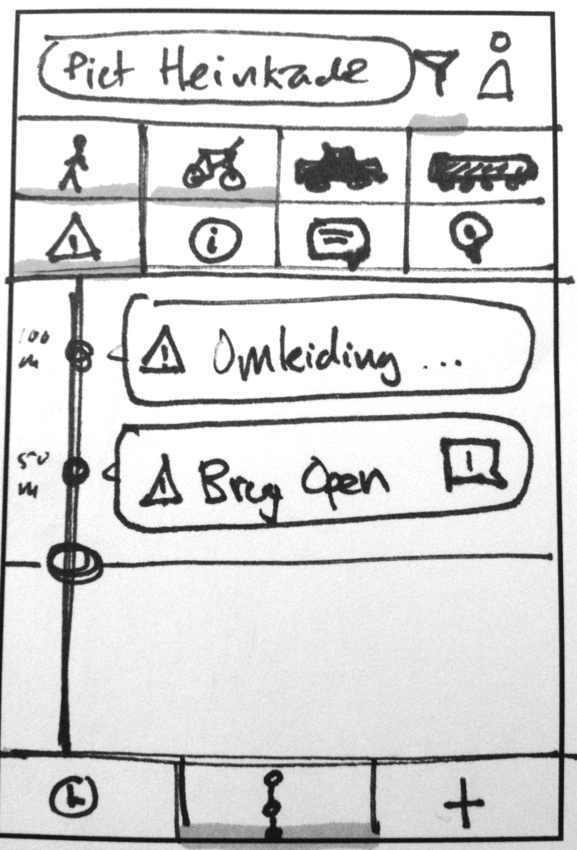 Piet Heinkade
100
m
Omleiding ...
500
m
Brug Open